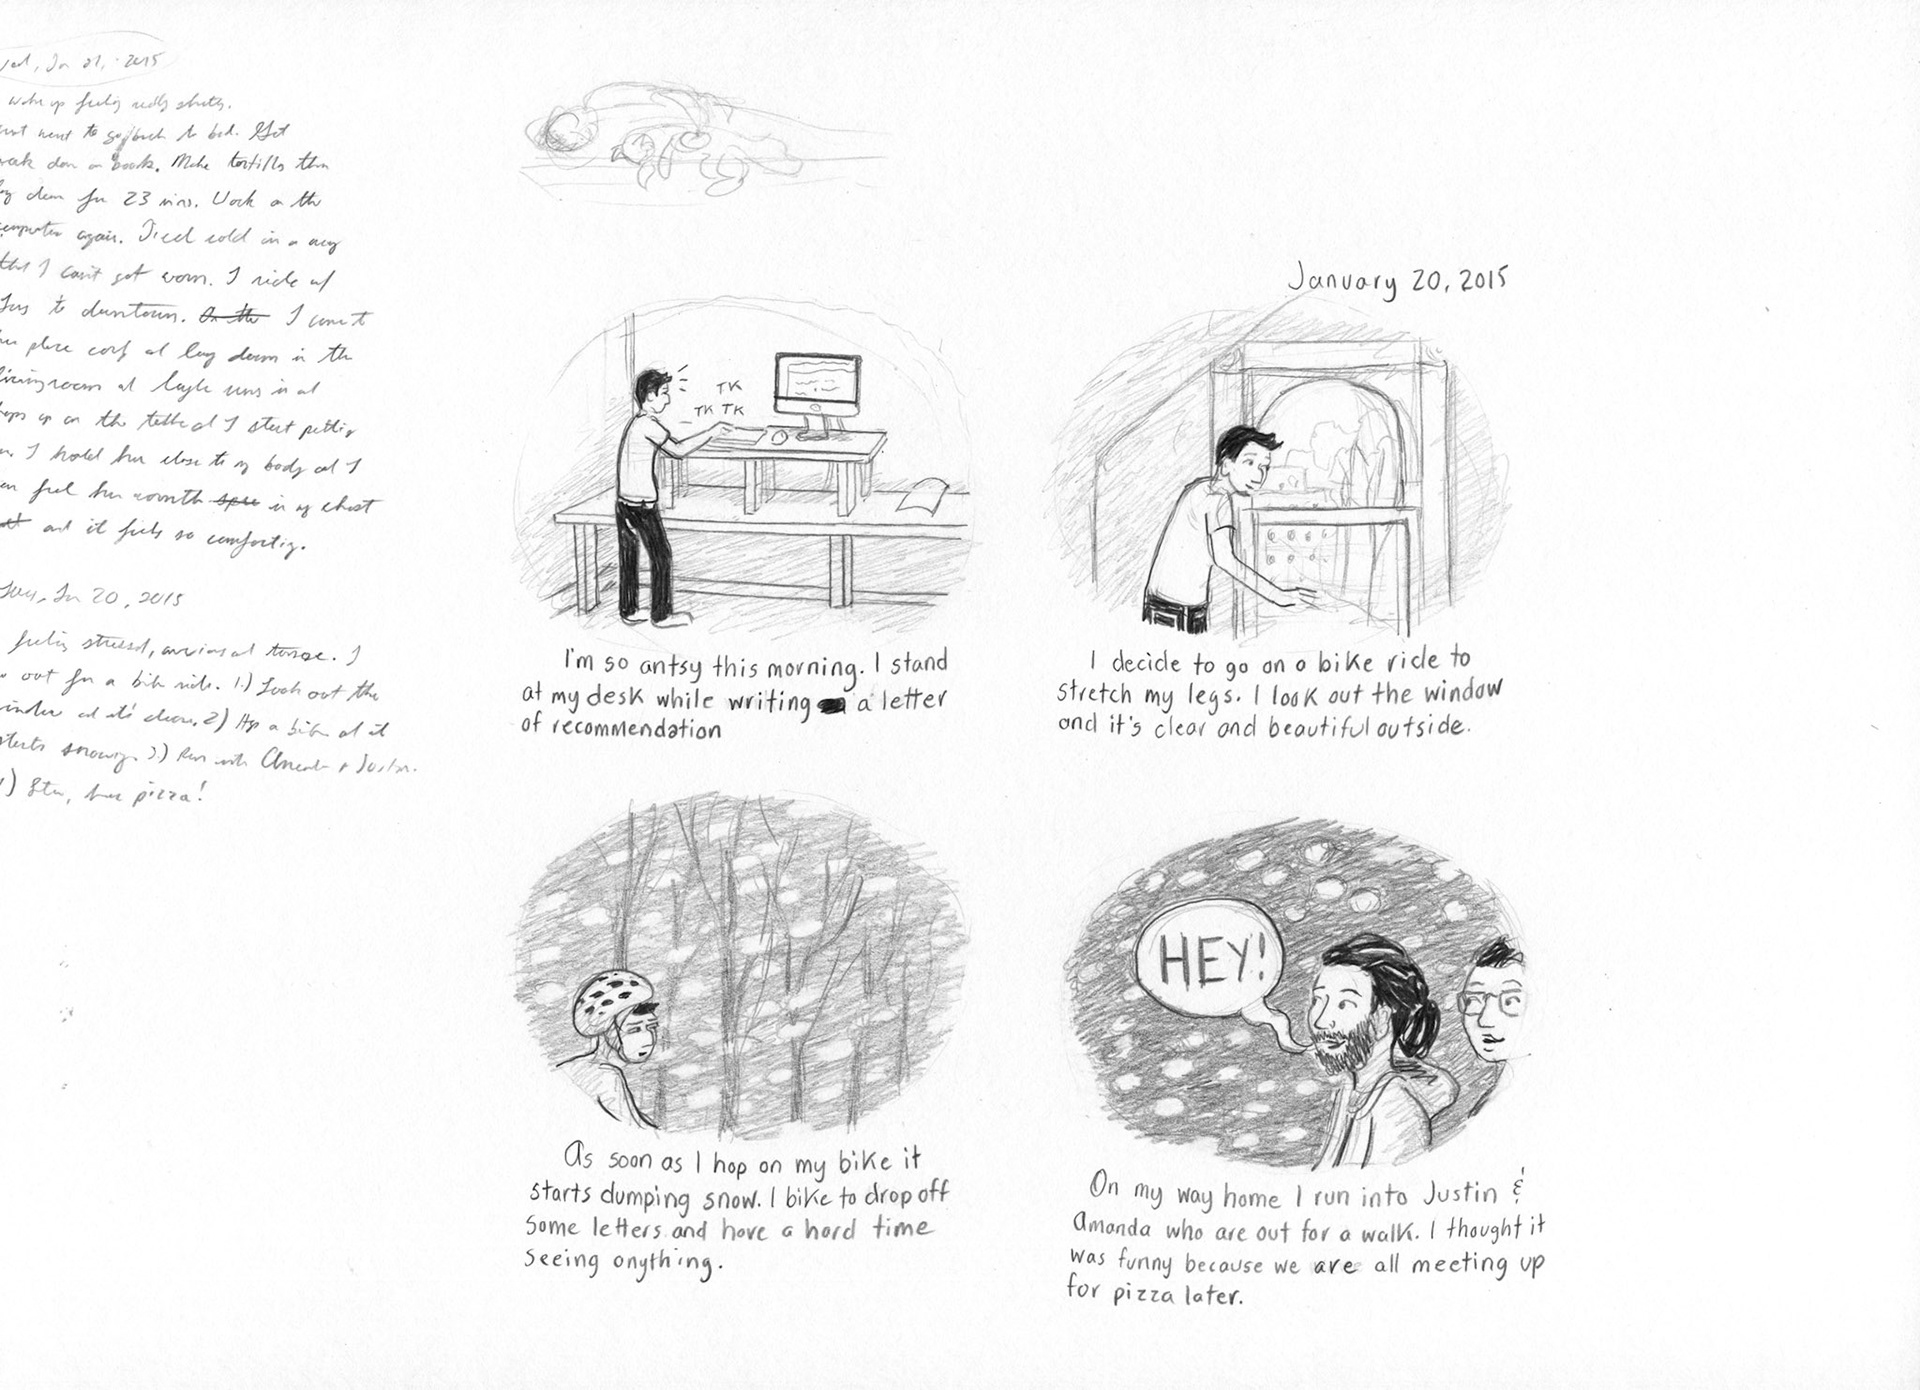 Jan 21, 2015
woke up feeling really shitty.
want to go back to bed. Get
work done on book. Make tortillas then
lay down for 23 mins. Work on the
computer again. I feel cold in a way
that I can't get warm. I ride
to downtown. I come to
place and lay down in the
livingroom and runs in and
hops up on the table and I start petting
I hold her close to my body and I
can feel her warmth in my chest
and it feels so comforting.
Jan 20, 2015
feeling stressed, anxious and tense. I
out for a bike ride. 1.) Look out the
window and it's clear. 2) Hop on bike and it
starts snowing. 3.) Run with Amanda + Justin.
pizza!
January 20, 2015
TK
TK TK
I'm so antsy this morning. I stand
at my desk while writing a letter
of recommendation
I decide to go on a bike ride to
stretch my legs. I look out the window
and it's clear and beautiful outside.
As soon as I hop on my bike it
starts dumping snow. I bike to drop off
some letters and have a hard time
seeing anything.
HEY!
On my way home I run into Justin &
Amanda who are out for a walk. I thought it
was funny because we are all meeting up
for pizza later.